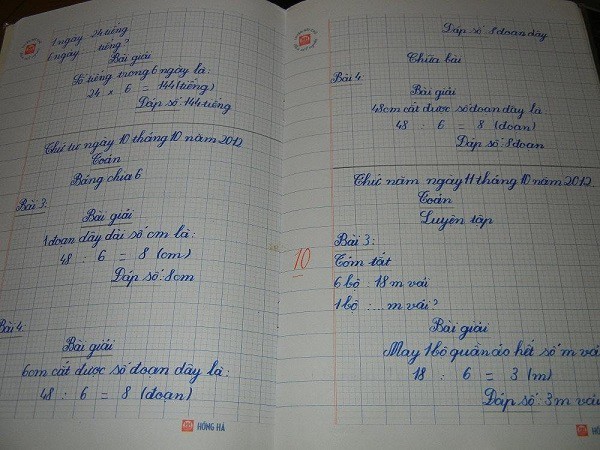 1 ngày 24 tiếng
6 ngày tiếng?
Bài giải
Số tiếng trong 6 ngày là:
24 × 6 = 144 (tiếng)
Đáp số: 144 tiếng
Thứ tư ngày 10 tháng 10 năm 2012
Toán
Bảng chia 6
Bài 3:
Bài giải
1 đoạn dây dài số cm là:
48 : 6 = 8 (cm)
Đáp số: 8cm
Bài 4:
Bài giải
6cm cắt được số đoạn dây là:
48 : 6 = 8 (đoạn)
HỒNG HÀ
Đáp số: 8 đoạn dây
Chữa bài
Bài 4
Bài giải
48cm cắt được số đoạn dây là
48 : 6 = 8 (đoạn)
Đáp số: 8 đoạn
Thứ năm ngày 11 tháng 10 năm 2012
Toán
Luyện tập
10
Bài 3:
Tóm tắt
6 bộ : 18 m vải
1 bộ : ... m vải?
Bài giải
May 1 bộ quần áo hết số m vải
18 : 6 = 3 (m)
Đáp số: 3 m vải